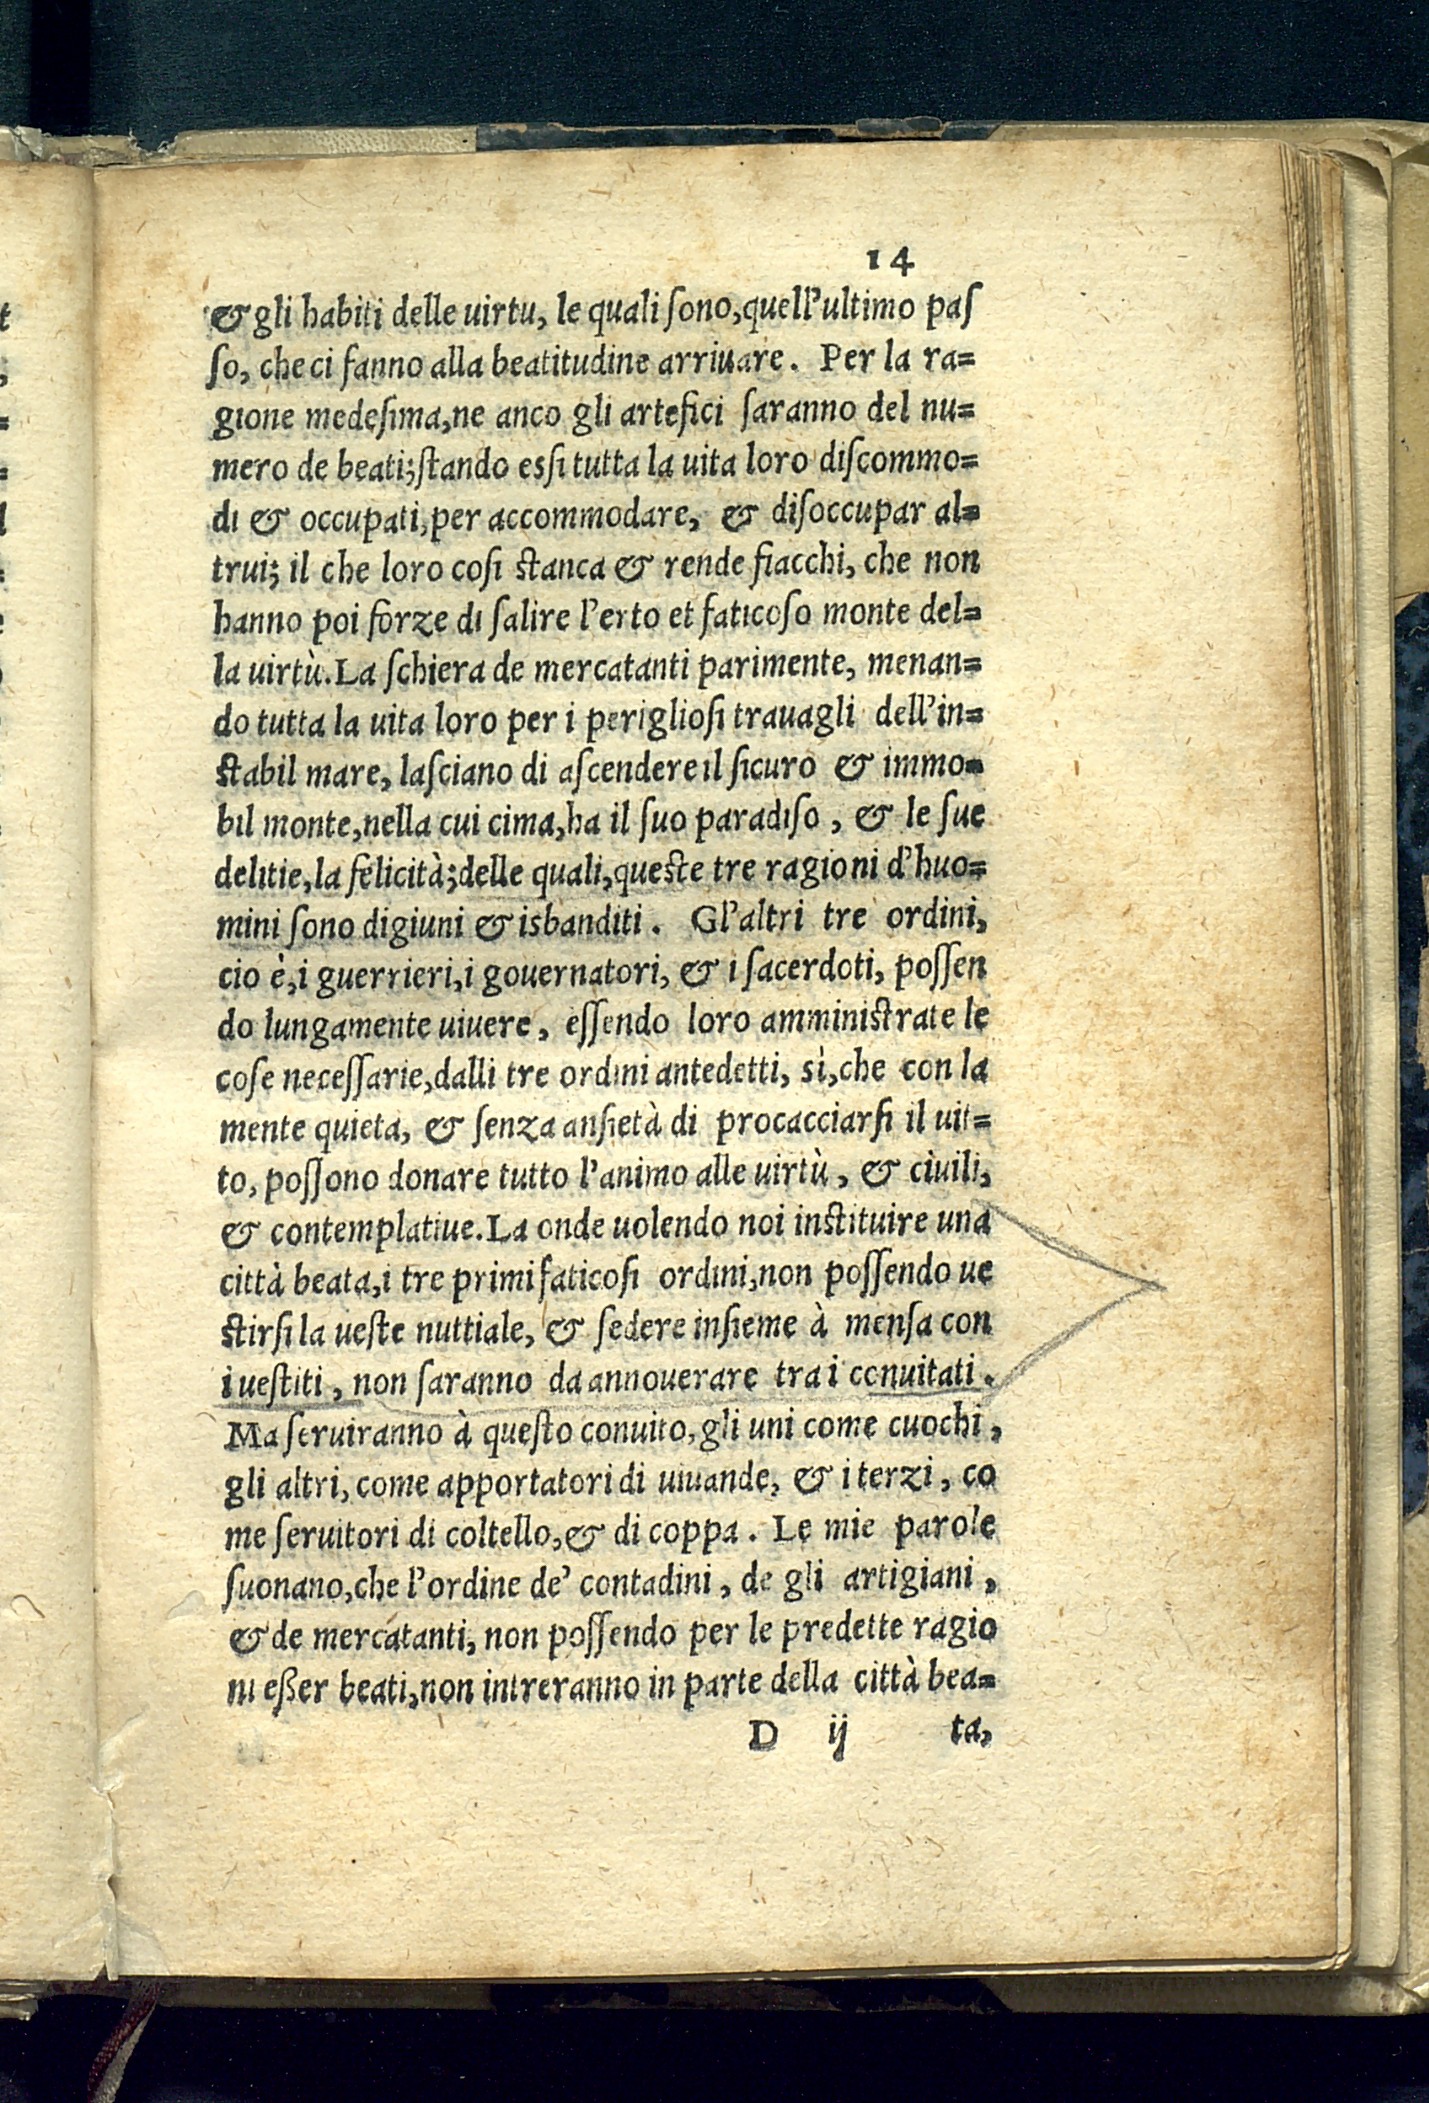 14
& gli habiti delle uirtu, le quali ſono, quell'ultimo paſ
ſo, che ci fanno alla beatitudine arriuare. Per la ra=
gione medeſima, ne anco gli artefici ſaranno del nu=
mero de beati; ſtando eſsi tutta la uita loro diſcommo=
di & occupati, per accommodare, & diſoccupar al=
trui; il che loro coſi ſtanca & rende fiacchi, che non
hanno poi forze di ſalire l'erto et faticoſo monte del=
la uirtù. La ſchiera de mercatanti parimente, menan=
do tutta la uita loro per i periglioſi trauagli dell'in=
ſtabil mare, laſciano di aſcendere il ſicuro & immo=
bil monte, nella cui cima, ha il ſuo paradiſo, & le ſue
delitie, la felicità; delle quali, queſte tre ragioni d'huo=
mini ſono digiuni & isbanditi. Gl'altri tre ordini,
cio è, i guerrieri, i gouernatori, & i ſacerdoti, poſſen
do lungamente uiuere, eſſendo loro amminiſtrate le
coſe neceſſarie, dalli tre ordini antedetti, sì, che con la
mente quieta, & ſenza anſietà di procacciarſi il uit=
to, poſſono donare tutto l'animo alle uirtù, & ciuili,
& contemplatiue. La onde uolendo noi inſtituire una
città beata, i tre primi faticoſi ordini, non poſſendo ue
ſtirſi la ueſte nuttiale, & ſedere inſieme à menſa con
i ueſtiti, non ſaranno da annouerare tra i conuitati.
Ma ſeruiranno à queſto conuito, gli uni come cuochi,
gli altri, come apportatori di uiuande, & i terzi, co
me ſeruitori di coltello, & di coppa. Le mie parole
ſuonano, che l'ordine de' contadini, de gli artigiani,
& de mercatanti, non poſſendo per le predette ragio
ni eßer beati, non intreranno in parte della città bea=
D ij ta,